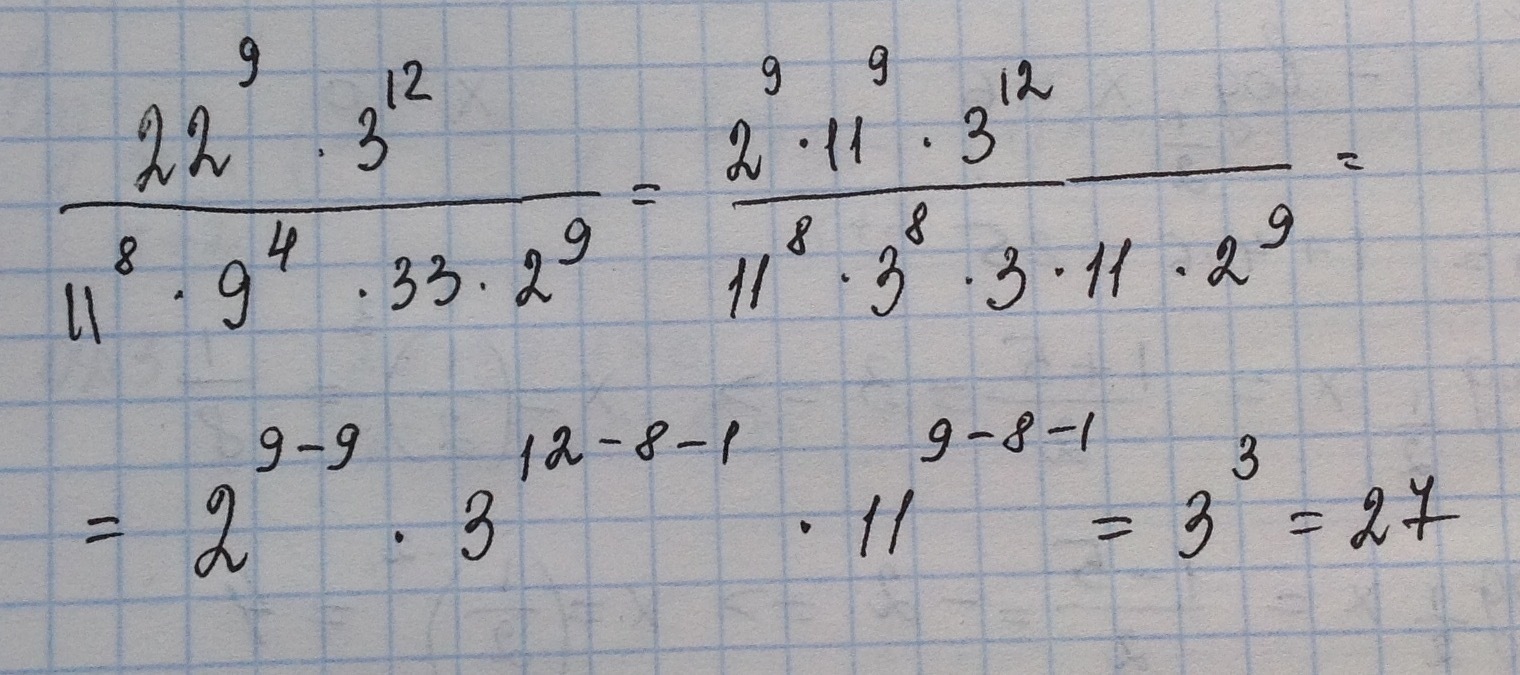 22⁹ · 3¹² / 11⁸ · 9⁴ · 33 · 2⁹ = 2⁹ · 11⁹ · 3¹² / 11⁸ · 3⁸ · 3 · 11 · 2⁹ =
= 2⁹⁻⁹ · 3¹²⁻⁸⁻¹ · 11⁹⁻⁸⁻¹ = 3³ = 27